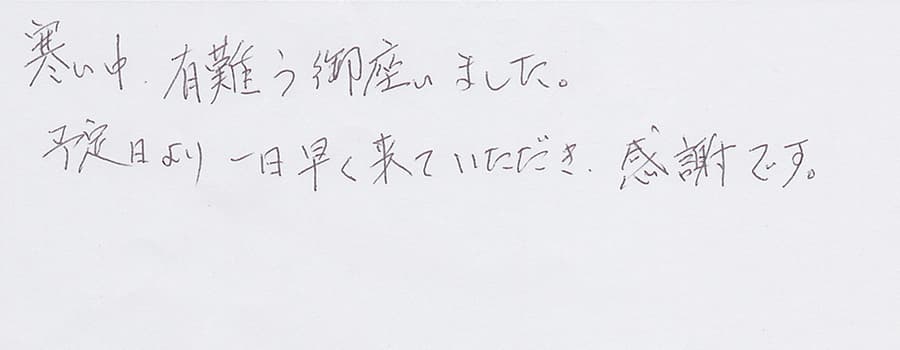 寒い中、有難う御座いました。
予定日より一日早く来ていただき、感謝です。